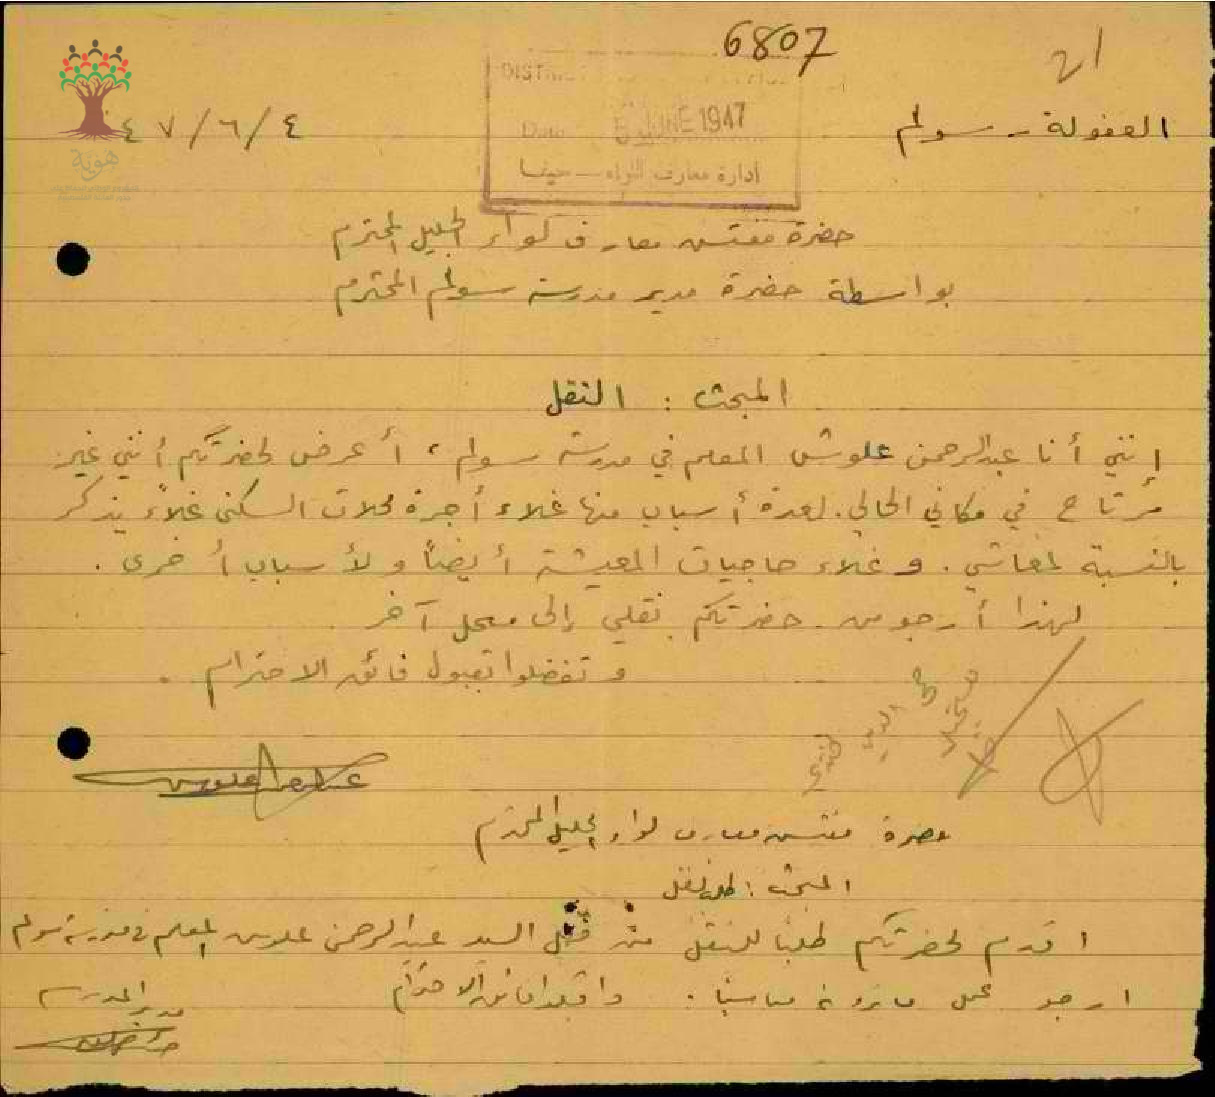 6807
21
DISTRICT
Date 5 JUNE 1947
ادارة معارف اللواء - حيفا
العفولة - سولم
٤ / ٦ / ٤٧
هوية
حضرة مفتش معارف لواء الجليل المحترم
بواسطة حضرة مدير مدرسة سولم المحترم
المبحث : النقل
إنني أنا عبدالرحمن علوش المعلم في مدرسة سولم، أعرض لحضرتكم أنني غير
مرتاح في مكاني الحالي. لعدة أسباب منها غلاء أجرة محلات السكنى غلاءً يذكر
بالنسبة لمعاشي. وغلاء حاجيات المعيشة أيضاً ولأسباب أخرى.
لهذا أرجو من حضرتكم نقلي إلى محل آخر
وتفضلوا بقبول فائق الاحترام.
حضرة مفتش معارف لواء الجليل المحترم
المبحث : طلب نقل
اقدم لحضرتكم طلباً للنقل من قبل السيد عبدالرحمن علوش المعلم في مدرسة سولم
ارجو عمل ما ترونه مناسباً. واقبلوا فائق الاحترام
مدير المدرسة